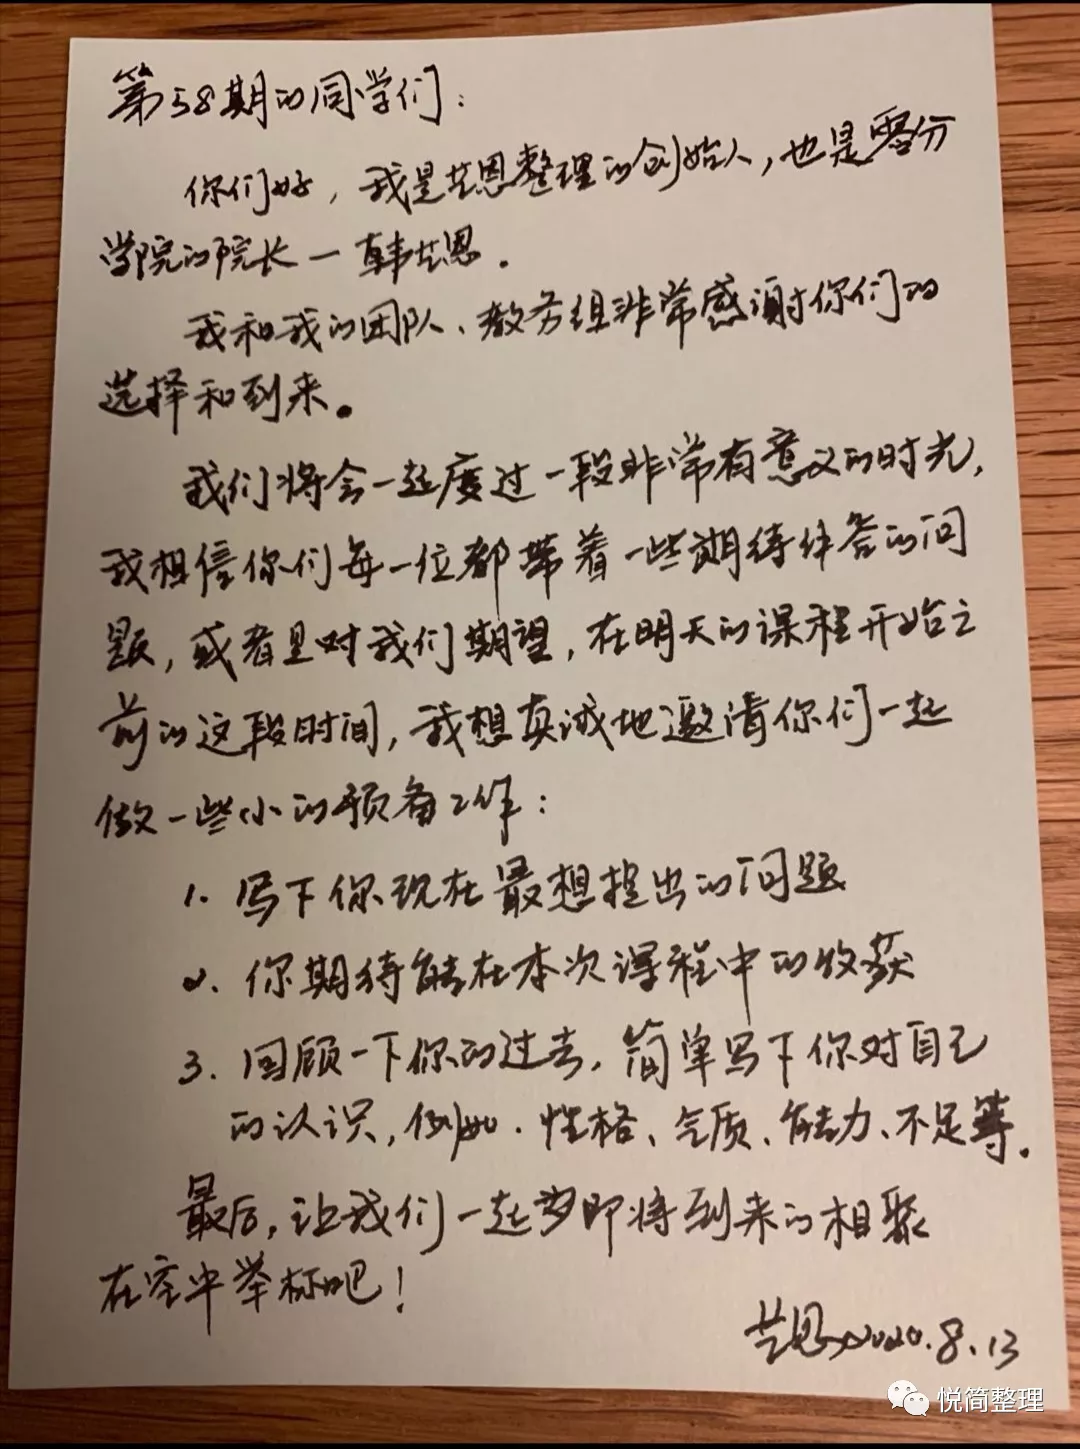 第58期的同学们：
你们好，我是艺恩整理的创始人，也是零分
学院的院长一韩艺恩.
我和我的团队、教务组非常感谢你们的
选择和到来。
我们将会一起度过一段非常有意义的时光，
我相信你们每一位都带着一些期待解答的问
题，或者是对我们期望，在明天的课程开始之
前的这段时间，我想真诚地邀请你们一起
做一些小的预备工作：
1. 写下你现在最想提出的问题
2. 你期待能在本次课程中的收获
3. 回顾一下你的过去，简单写下你对自己
的认识，例如、性格、气质、能力、不足等.
最后，让我们一起为即将到来的相聚
在空中举杯吧！
艺恩 2020.8.13
悦简整理